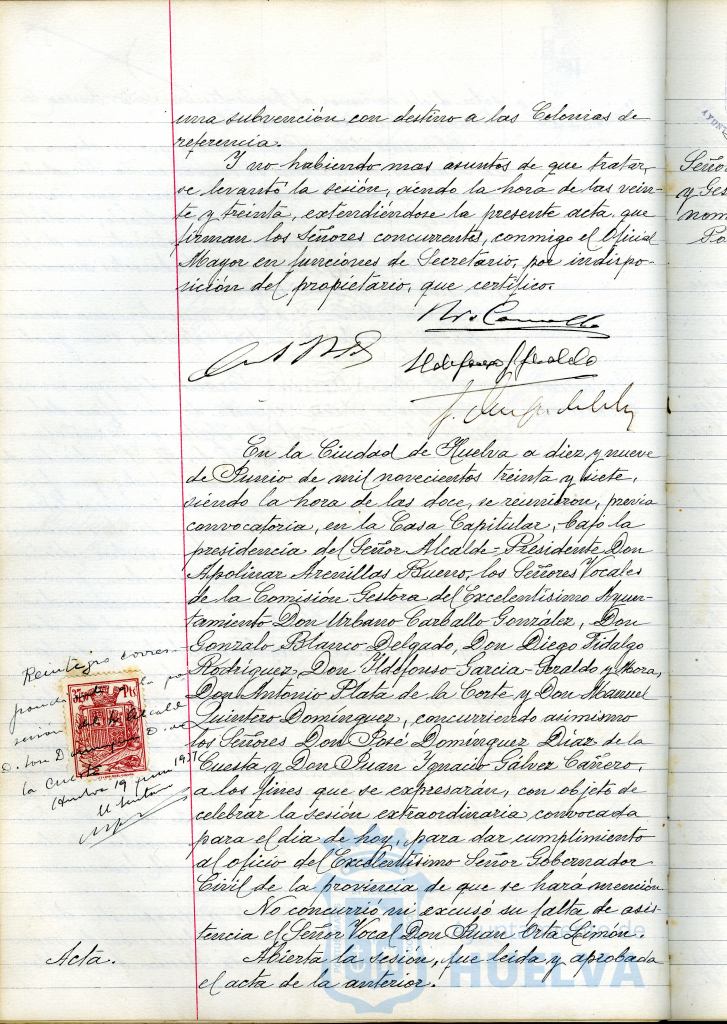 una subvención con destino a las Colonias de
referencia.
Y no habiendo mas asuntos de que tratar,
se levantó la sesión, siendo la hora de las vein-
te y treinta, extendiéndose la presente acta que
firman los Señores concurrentes, conmigo el Oficial
Mayor en funciones de Secretario, por indispo-
sición del propietario, que certifico.
En la Ciudad de Huelva a diez y nueve
de Junio de mil novecientos treinta y siete,
siendo la hora de las doce, se reunieron, previa
convocatoria, en la Casa Capitular, bajo la
presidencia del Señor Alcalde-Presidente Don
Apolinar Arenillas Bueno, los Señores Vocales
de la Comisión Gestora del Excelentísimo Ayun-
tamiento Don Urbano Carballo González, Don
Gonzalo Blanco Delgado, Don Diego Fidalgo
Rodríguez, Don Ildefonso Garcia-Geraldo y Mora,
Don Antonio Plata de la Corte y Don Manuel
Quintero Dominguez, concurriendo asimismo
los Señores Don José Dominguez Diaz de la
Cuesta y Don Juan Ignacio Gálvez Cañero,
a los fines que se expresarán, con objeto de
celebrar la sesión extraordinaria convocada
para el dia de hoy, para dar cumplimiento
al oficio del Excelentísimo Señor Gobernador
Civil de la provincia de que se hará mención
No concurrió ni excusó su falta de asis-
tencia el Señor Vocal Don Juan Orta Limón.
Acta.
Abierta la sesión, fue leida y aprobada
el acta de la anterior.
Reintegro corres-
la Cuesta
Huelva 19 junio 1937
Ptas
HUELVA
Señor
y Ges
nom
Po